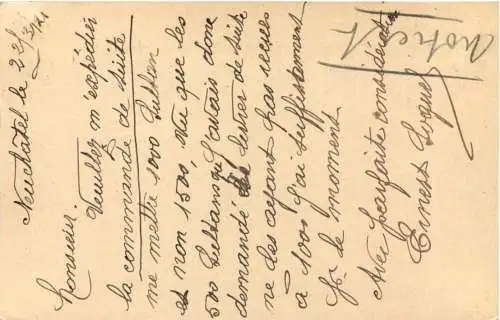 Neuchâtel le 22/3/21
Monsieur.
Veuillez m'expédier
la commande de suite
me mettre 1000 Sultan
et non 1500, vu que les
500 Sultans que j'avais donc
demandé de livrer de suite
ne les ayant pas reçues
à 1000 j'ai suffisamment
pr. le moment.
Avec parfaite considération
Ernest